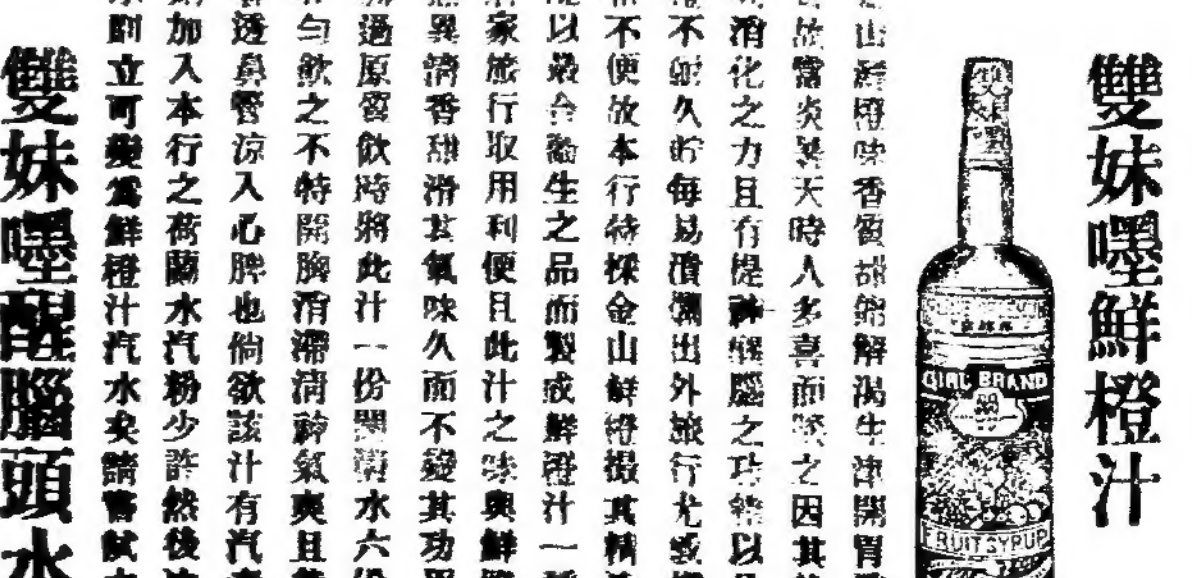 雙妹嚜鮮橙汁
雙妹嚜
GIRL BRAND
FRUIT SYRUP
山鮮橙味香質甜能解渴生津開胃
故當炎暑天時人多喜而啖之因其
消化之力且有提神醒腦之功能以
不耐久貯每易潰爛出外旅行尤感
不便故本行特採金山鮮橙撮其精
以最合衞生之品而製成鮮橙汁一種
家旅行取用利便且此汁之味與鮮
異清香甜滑其氣味久而不變其功
過原質飲時將此汁一份開清水六份
勻飲之不特開胸消滯清神氣爽且
透鼻馨涼入心脾也倘欲該汁有汽
加入本行之荷蘭水汽粉少許然後
則立可變為鮮橙汁汽水矣請嘗試
雙妹嚜醒腦頭水